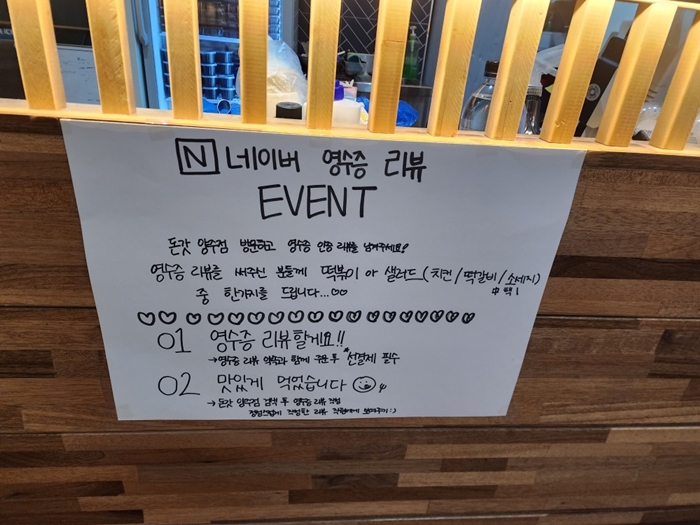 N 네이버 영수증 리뷰
EVENT
돈갓 양주점 방문하고 영수증 인증 리뷰를 남겨주세요?
영수증 리뷰를 써주신 분들께 떡볶이 or 샐러드(치킨/떡갈비/소세지)
中 택 1
중 한가지를 드립니다...♡♡
01 영수증 리뷰할게요!!
→영수증 리뷰 약속과 함께 주문 후 선결제 필수
02 맛있게 먹었습니다
→돈갓 양주점 검색 후 영수증 리뷰 작성
작성한 리뷰 직원에게 보여주기:)